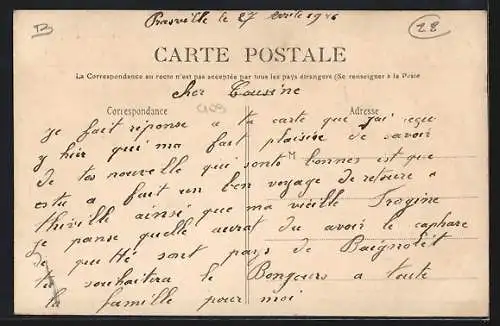 B
Prasville le 27 Avril 1916
28
CARTE POSTALE
La Correspondance au recto n'est pas acceptée par tous les pays étrangers (Se renseigner à la Poste
cher Coussine
C109
Correspondance
Adresse
je fait réponse a ta carte que j'ai reçu
y hier qui ma fait plaisire de savoir
de tes nouvelle qui sont bonnes est que
M
estu a fait un bon voyage de retoure a
thiville ainsé que ma vieille
je panse quelle aurat du avoir le caphare
de quitté sont pays de Baignolét
tu souhaitéra le Bongours a toute
ta famille pour moi